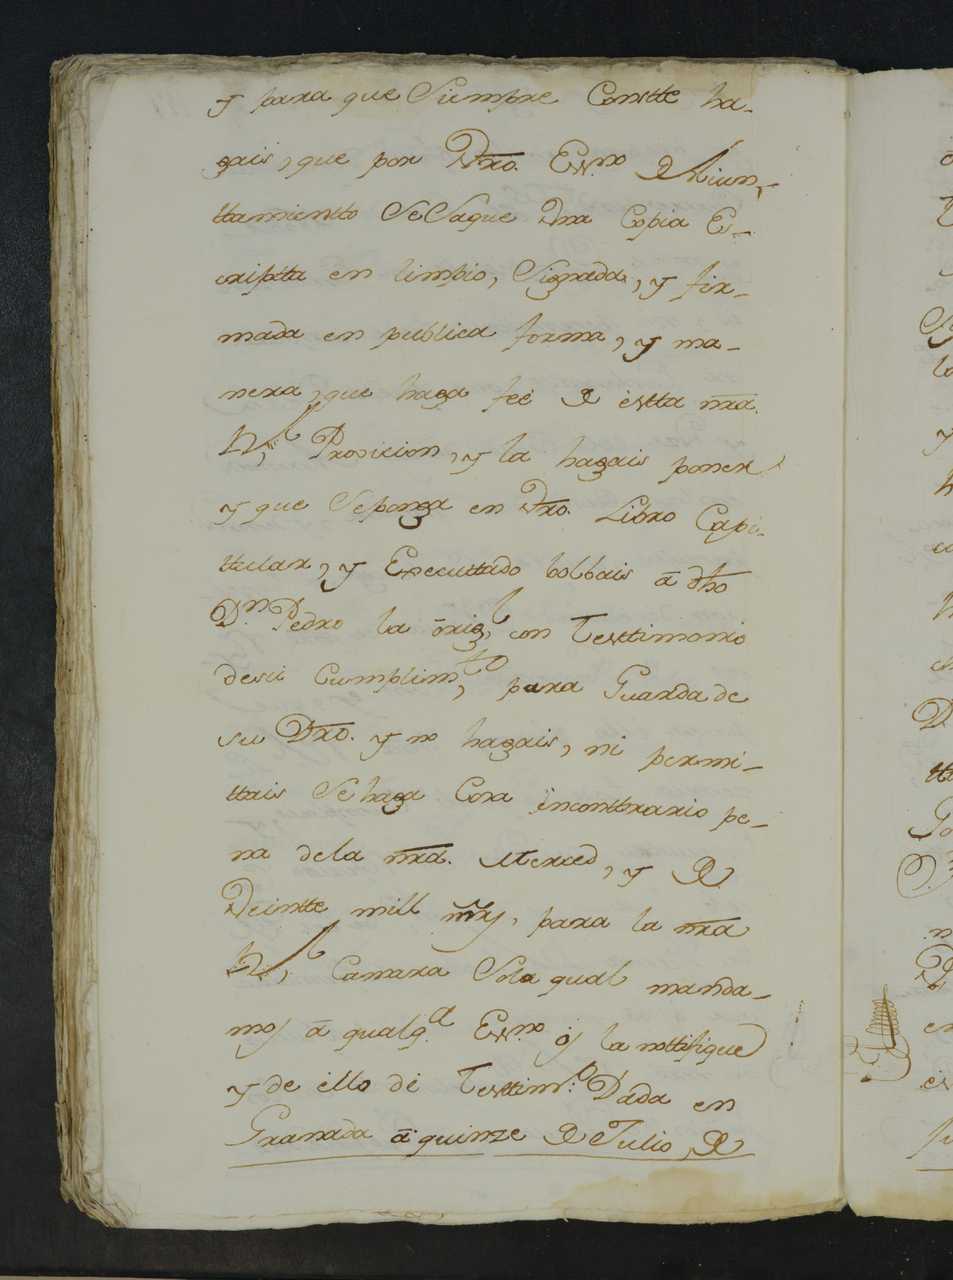 y para que Siempre Constte ha-
gais, que por Vtro. Essno. de Aiun-
ttamientto se Saque Una Copia Es-
cripta en limpio, Signada, y fir-
mada en publica forma, y ma-
nera, que haga feé de estta nra.
Rl. Provicion, y la hagais poner
y que Se ponga en Vtro. Libro Capi-
ttular, y Executtado bolbais â dho
Dn. Pedro la ôrigl. con Testtimonio
de su Cumplimtto, para Guarda de
su Dro. y no hagais, ni permi-
ttais Se haga Cosa incontrario pe-
na dela nra. Merced, y de
Veintte mill mrs, para la nra
Rl. Camara Sola qual manda-
mos â qualqa. Essno. ôs la nottifique
y de éllo dé Testtimo. Dada en
Granada â quinze de Julio, de